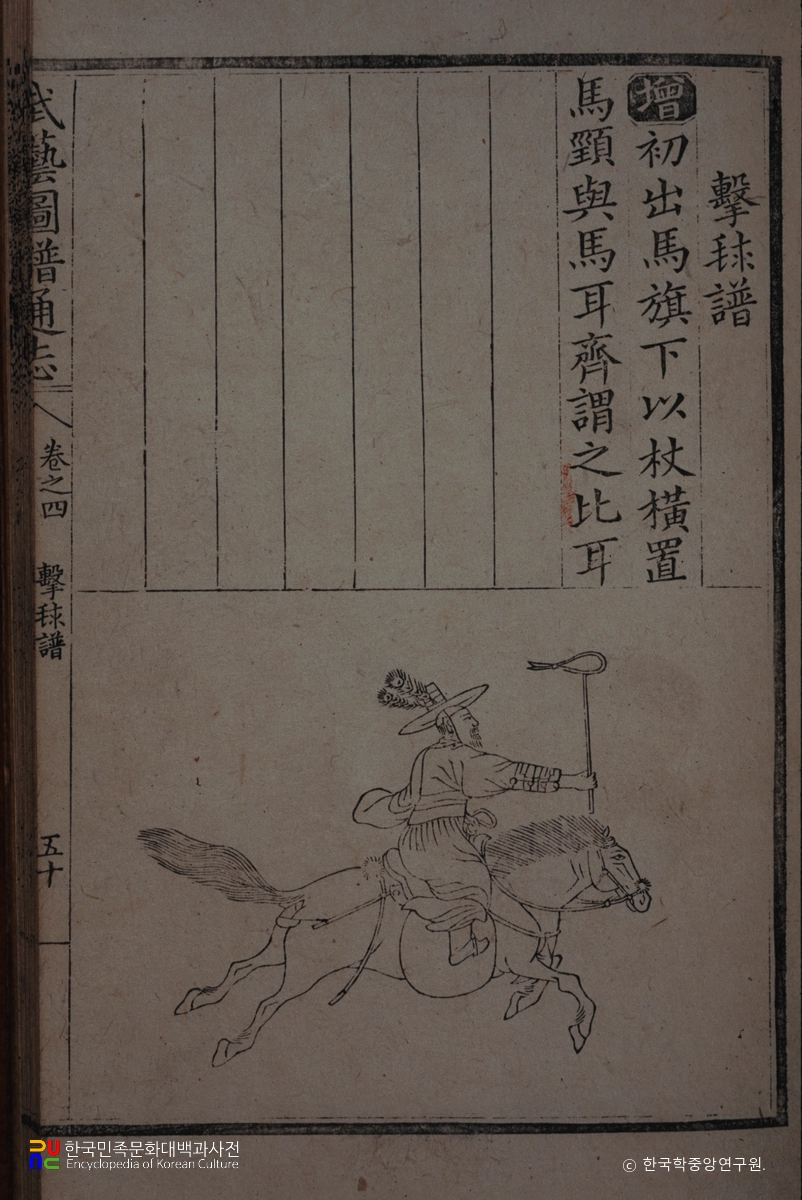 擊毬譜
增初出馬旗下以杖橫置
馬頸與馬耳齊謂之比耳
武藝圖譜通志
卷之四
擊毬譜
五十
한국민족문화대백과사전
Encyclopedia of Korean Culture
ⓒ 한국학중앙연구원.